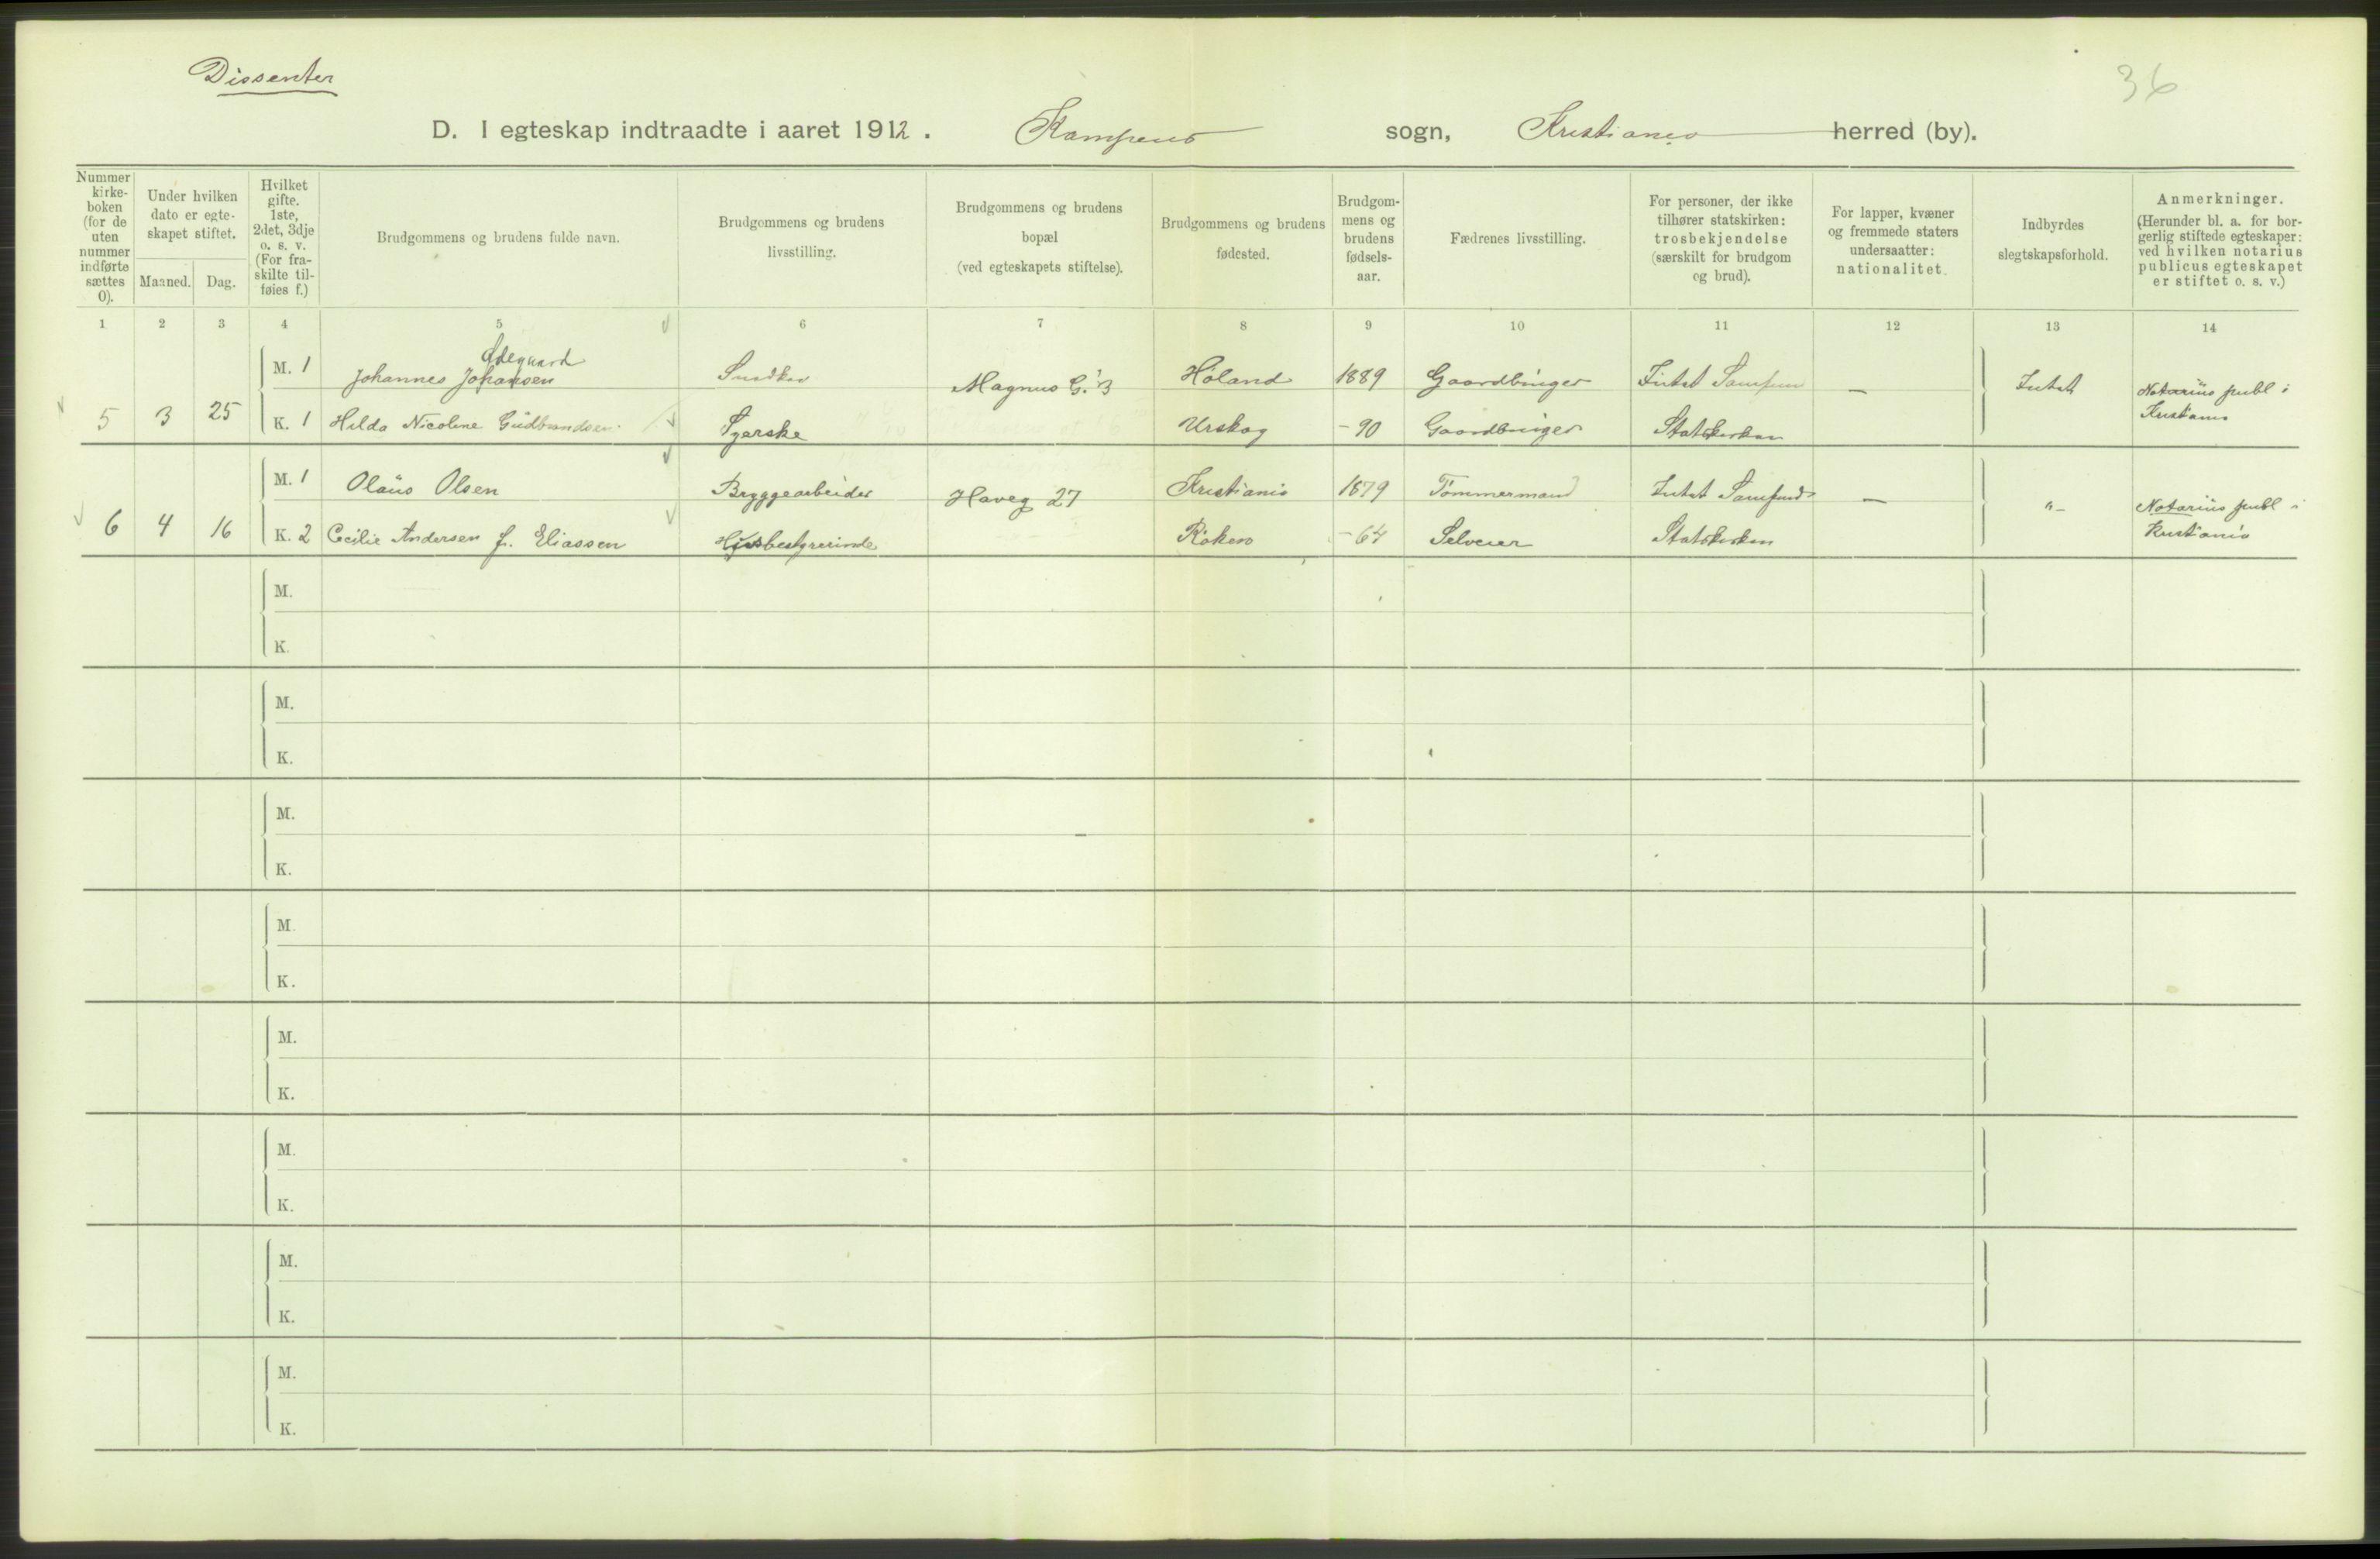 Dissenter
36
D. I egteskap indtraadte i aaret 1912. Kampens sogn, Kristiania herred (by).
Nummer kirkeboken (for de uten nummer indførte sættes 0).
Under hvilken dato er egteskapet stiftet.
Maaned. Dag.
Hvilket gifte. 1ste, 2det, 3dje o. s. v. (For fraskilte tilføies f.)
Brudgommens og brudens fulde navn.
Brudgommens og brudens livsstilling.
Brudgommens og brudens bopæl (ved egteskapets stiftelse).
Brudgommens og brudens fødested.
Brudgommens og brudens fødselsaar.
Fædrenes livsstilling.
For personer, der ikke tilhører statskirken: trosbekjendelse (særskilt for brudgom og brud).
For lapper, kvæner og fremmede staters undersaatter: nationalitet.
Indbyrdes slegtskapsforhold.
Anmerkninger. (Herunder bl. a. for borgerlig stiftede egteskaper: ved hvilken notarius publicus egteskapet er stiftet o. s. v.)
1 2 3 4 5 6 7 8 9 10 11 12 13 14
Ødegaard
M. 1 Johannes Johansen Snedker Magnus G. 3 Høland 1889 Gaardbruger Intet Samfun — Intet Notarius publ i
5 3 25 K. 1 Hilda Nicoline Gudbrandsen Syerske Urskog - 90 Gaardbruger Statskirken Kristiania
M. 1 Olaus Olsen Bryggearbeider Haveg 27 Kristiania 1879 Tømmermand Intet Samfund — "- Notarius publ i
6 4 16 K. 2 Cecilie Andersen f. Eliassen Husbestyrerinde Røken - 64 Selveier Statskirken Kristiania
M.
K.
M.
K.
M.
K.
M.
K.
M.
K.
M.
K.
M.
K.
M.
K.